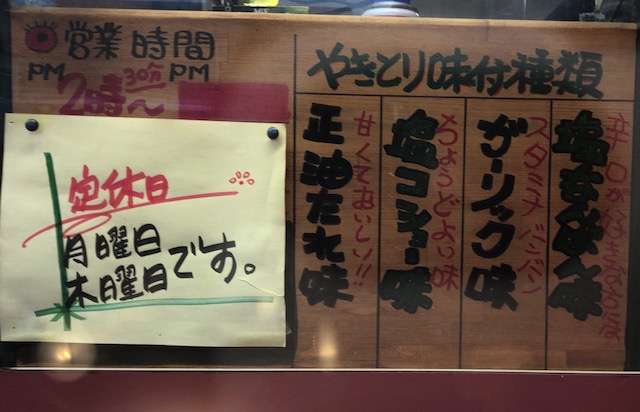 営業時間
PM 2時30分〜 PM
定休日
月曜日
木曜日です。
やきとり味付種類
甘くておいしい!!
正油たれ味
ちょうどよい味
塩コショー味
スタミナバンバン
ガーリック味